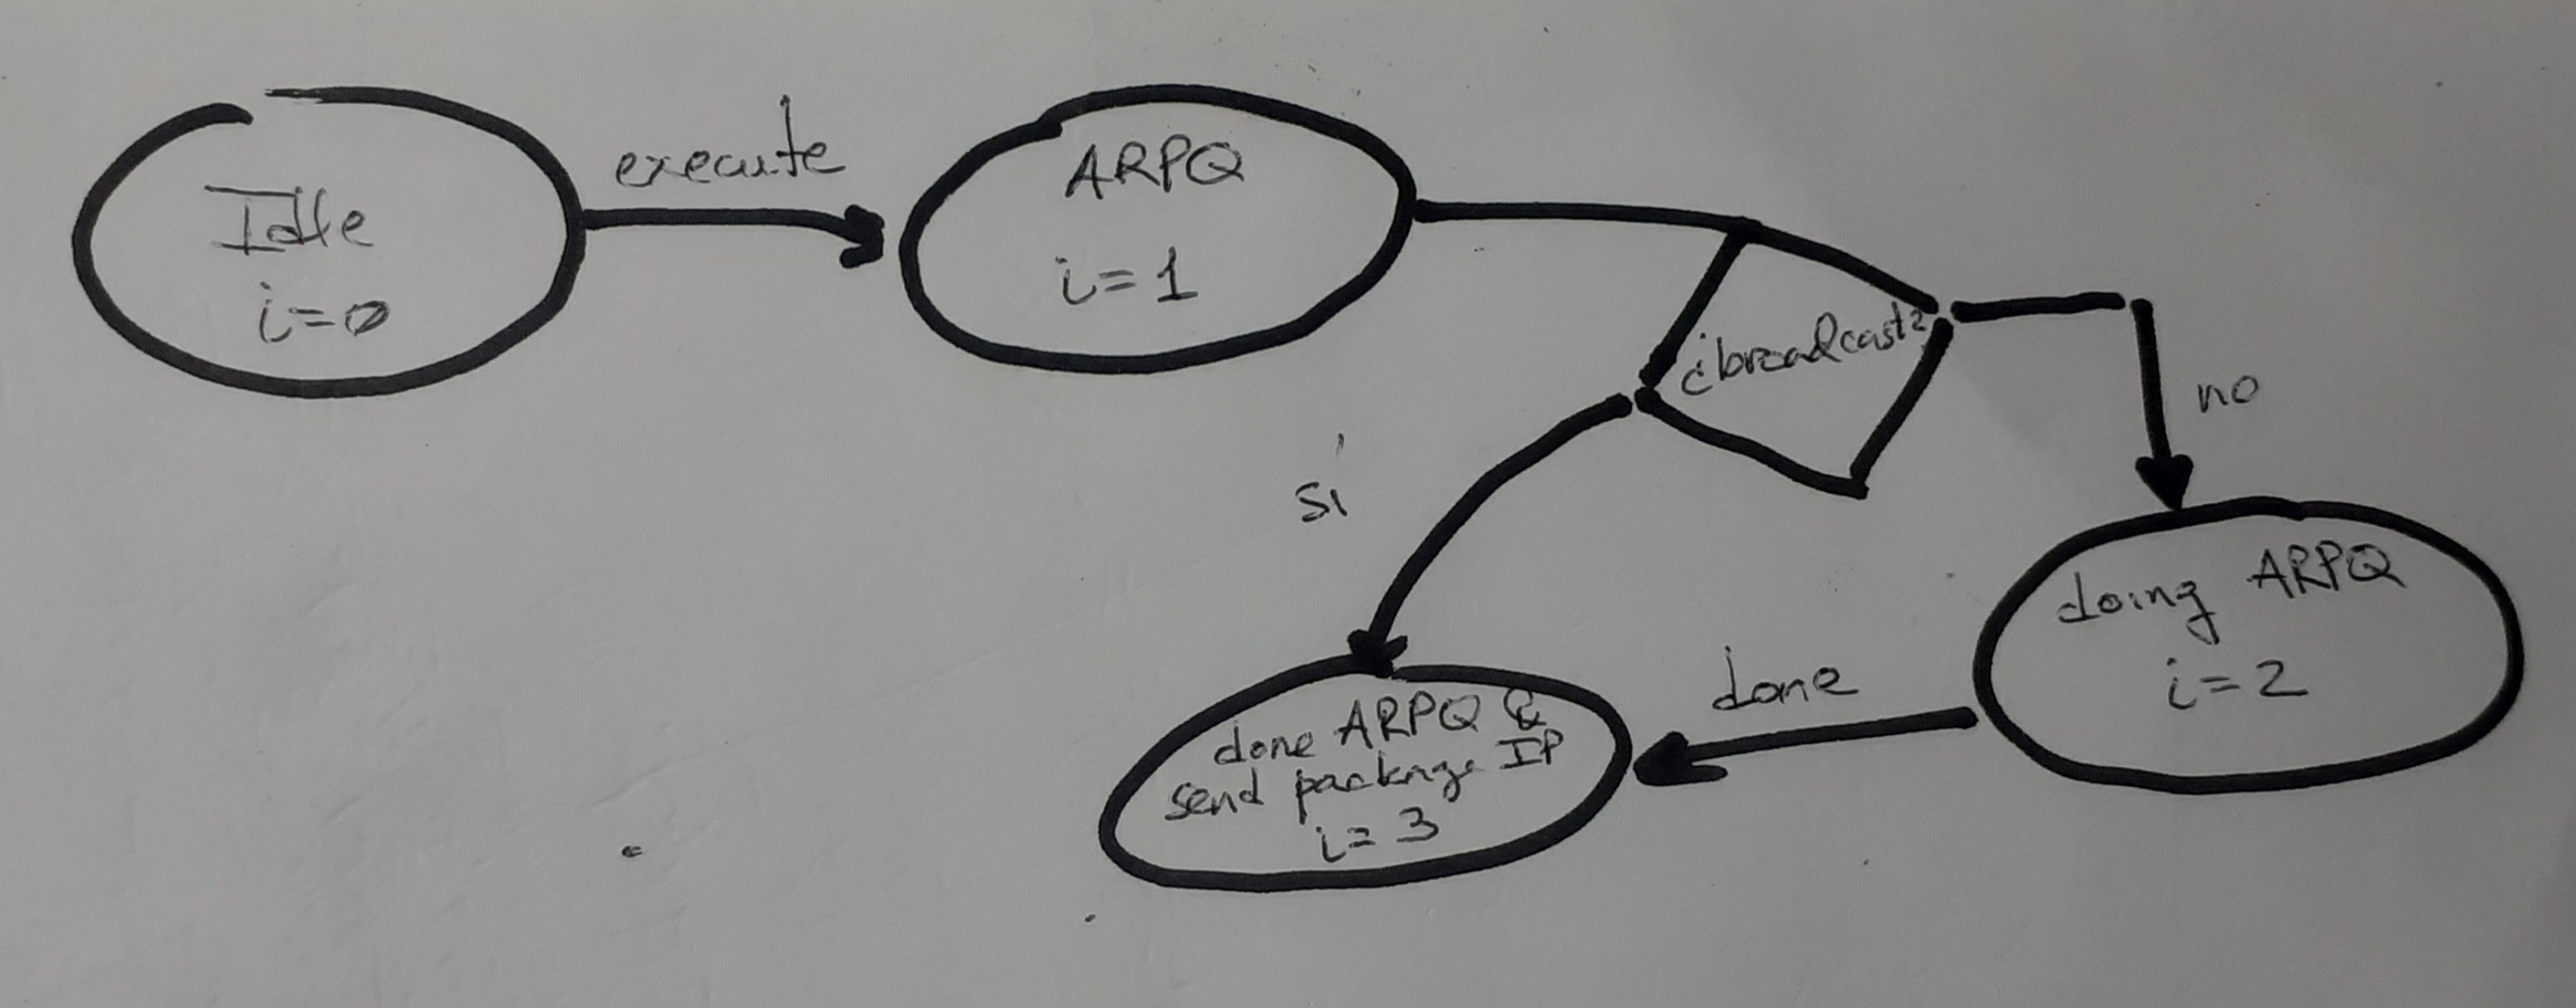 Idle
i=0
execute
ARPQ
i=1
¿broadcast?
sí
no
doing ARPQ
i=2
done
done ARPQ &
send package IP
i=3